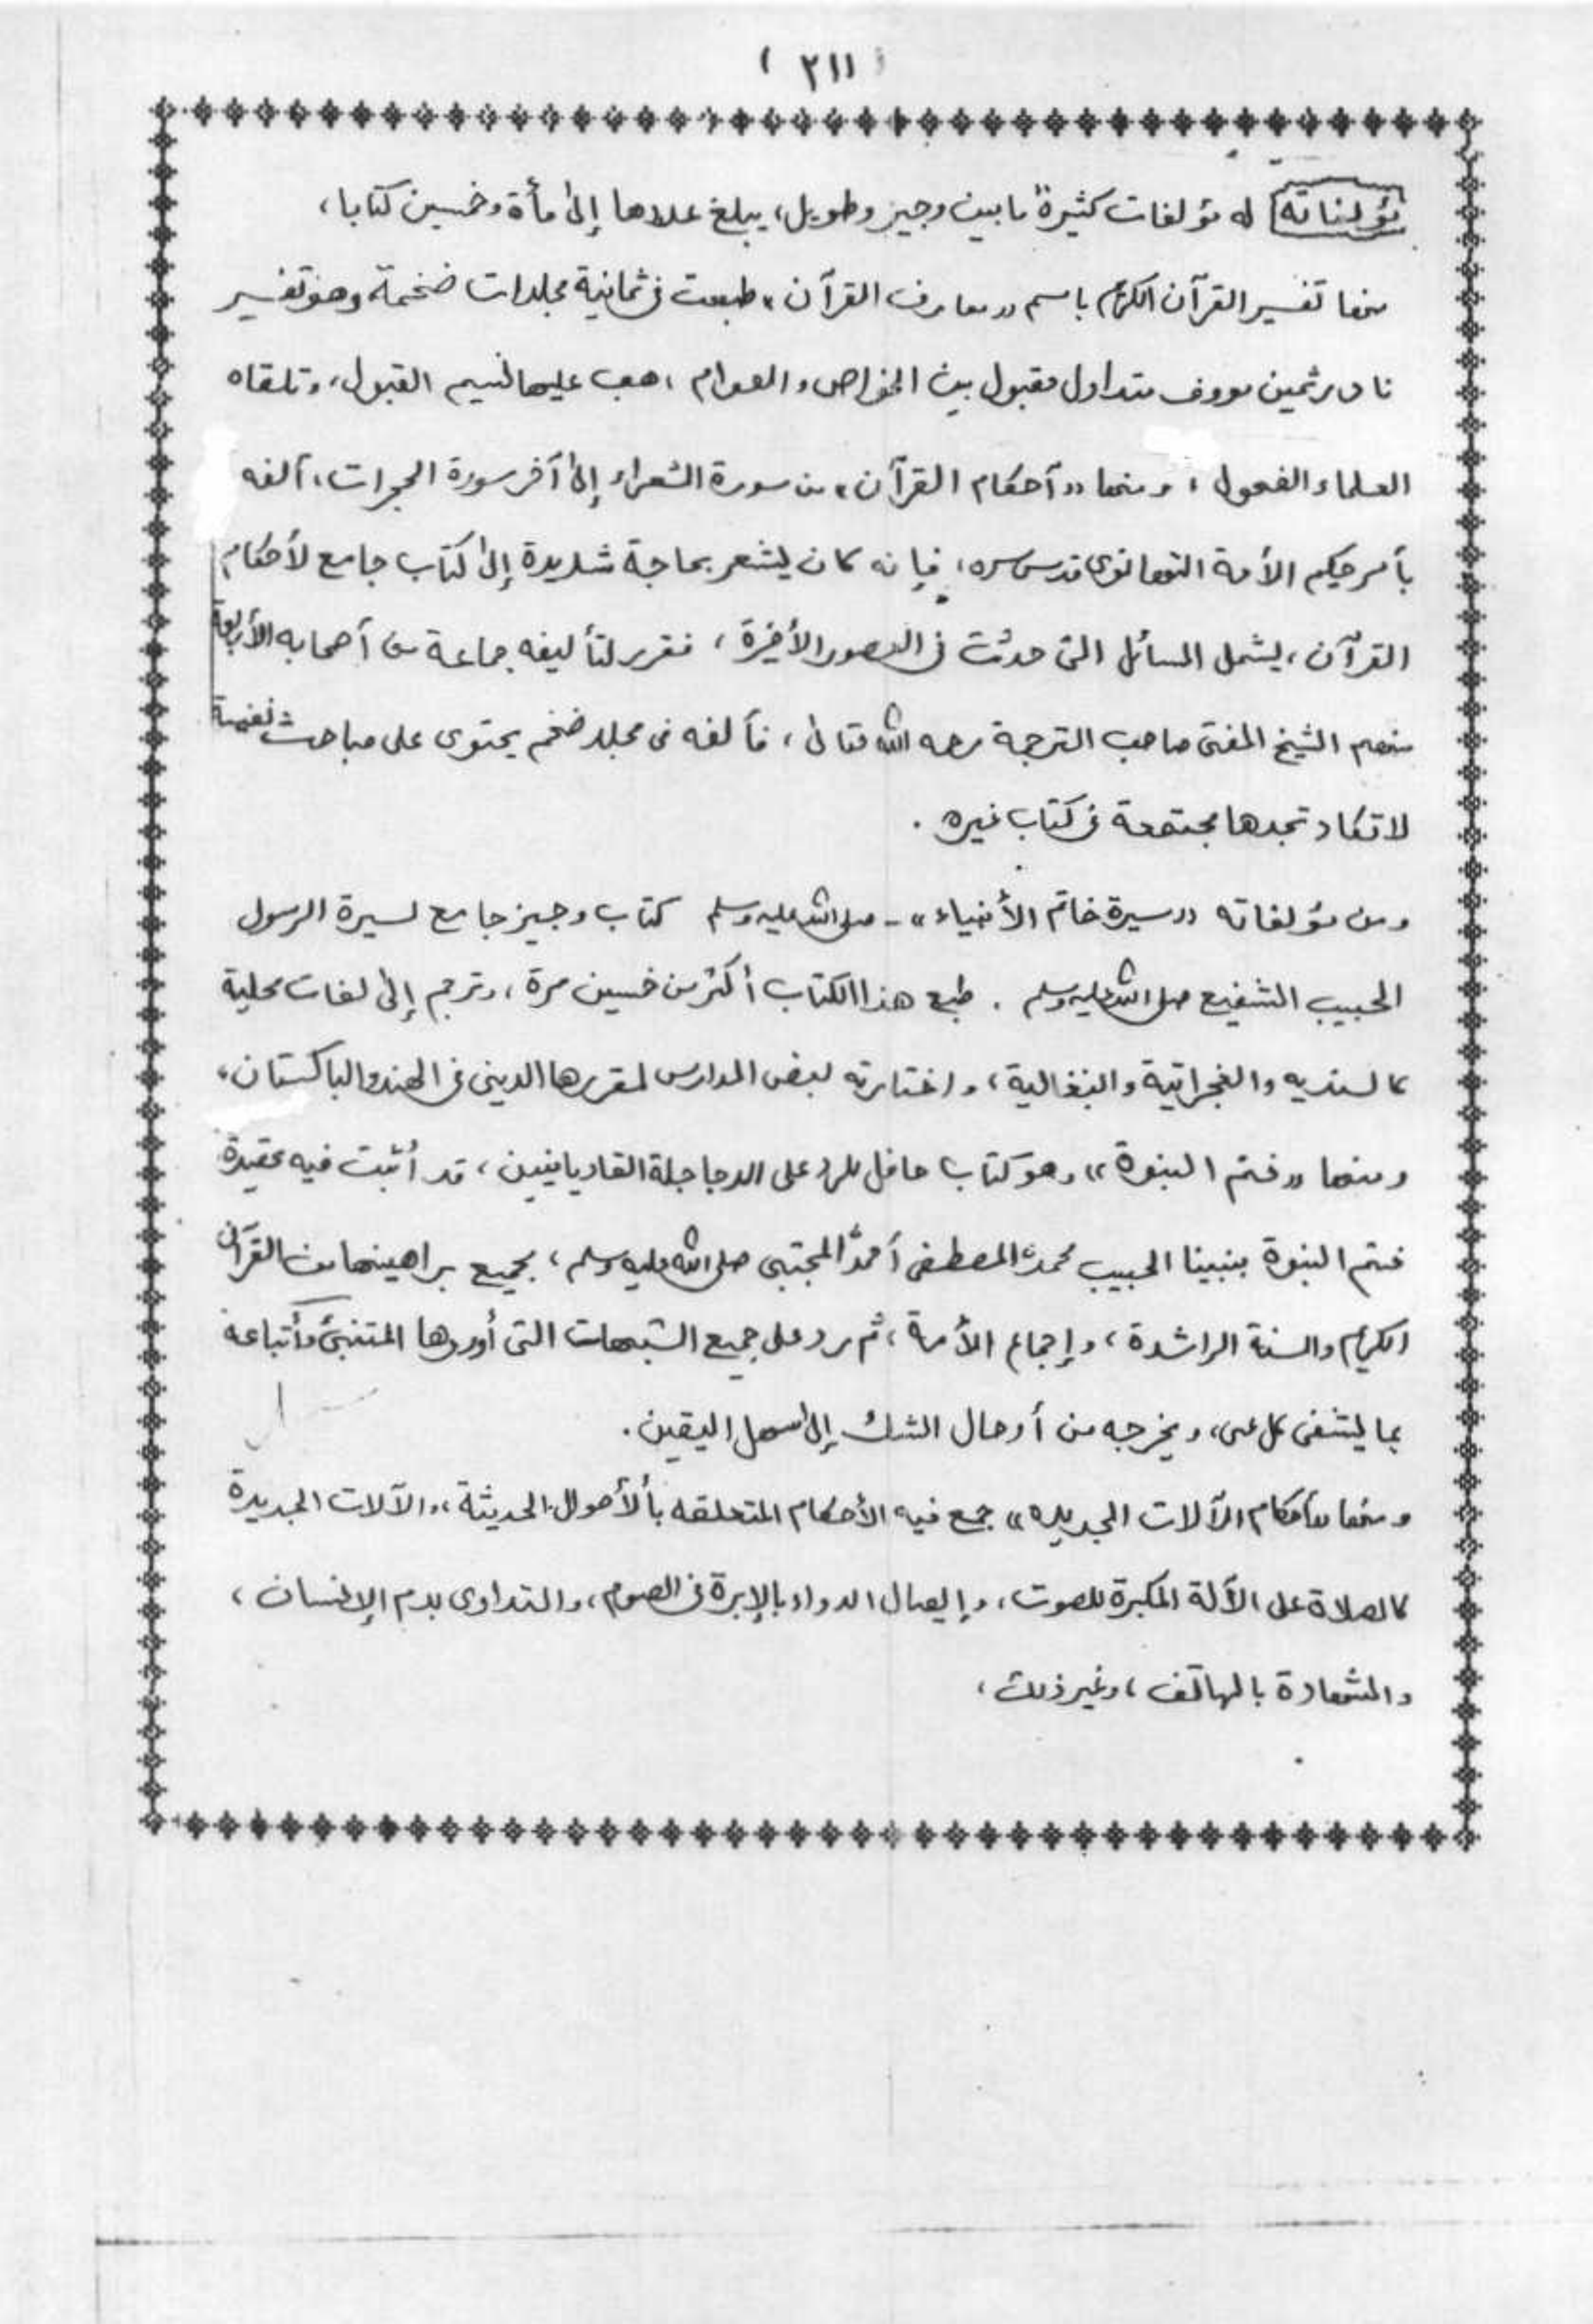 ( ٢١١ )
مؤلفاته له مؤلفات كثيرة ما بين وجيز وطويل، يبلغ عددها إلى مأة وخمسين كتابا،
منها تفسير القرآن الكريم باسم «معارف القرآن» طبعت في ثمانية مجلدات ضخمة وهو تفسير
نادر ثمين معروف متداول مقبول بين الخواص والعوام، هب عليها نسيم القبول، وتلقاه
العلماء الفحول، ومنها «أحكام القرآن» من سورة الشعراء إلى آخر سورة الحجرات، ألفه
بأمر حكيم الأمة التهانوي قدس سره، فإنه كان يشعر بحاجة شديدة إلى كتاب جامع لأحكام
القرآن، يشمل المسائل التي حدثت في العصور الأخيرة، فقرر لتأليفه جماعة من أصحابه الأربعة
منهم الشيخ المفتي صاحب الترجمة رحمه الله تعالى، فألفه في مجلد ضخم يحتوي على مباحث نفيسة
لا تكاد تجدها مجتمعة في كتاب غيره.
ومن مؤلفاته «سيرة خاتم الأنبياء» - صلى الله عليه وسلم كتاب وجيز جامع لسيرة الرسول
الحبيب الشفيع صلى الله عليه وسلم. طبع هذا الكتاب أكثر من خمسين مرة، وترجم إلى لغات محلية
كالسنديه والغجراتية والبنغالية، واختارته بعض المدارس لمقررها الديني في الهند والباكستان،
ومنها «ختم النبوة» وهو كتاب حافل للرد على الدجاجلة القاديانيين، قد أثبت فيه عقيدة
ختم النبوة بنبينا الحبيب محمد المصطفى أحمد المجتبى صلى الله عليه وسلم، بجميع براهينها من القرآن
الكريم والسنة الراشدة، وإجماع الأمة، ثم رد على جميع الشبهات التي أوردها المتنبئ وأتباعه
بما يشفي كل عي، ويخرجه من أوحال الشك إلى سهل اليقين.
ومنها «أحكام الآلات الجديده» جمع فيه الأحكام المتعلقه بالأحوال الحديثة، والآلات الجديدة
كالصلاة على الآلة المكبرة للصوت، وإيصال الدواء بالإبرة في الصوم، والتداوي بدم الإنسان،
والشهادة بالهاتف، وغير ذلك،